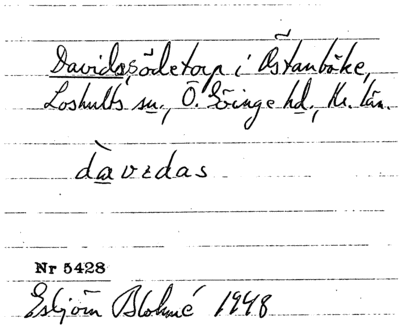 Davids, ödetorp i Östanböke,
Loshults sn., Ö. Göinge hd., Kr. län.
dàvɪdas
Nr 5428
Esbjörn Blohmé 1948